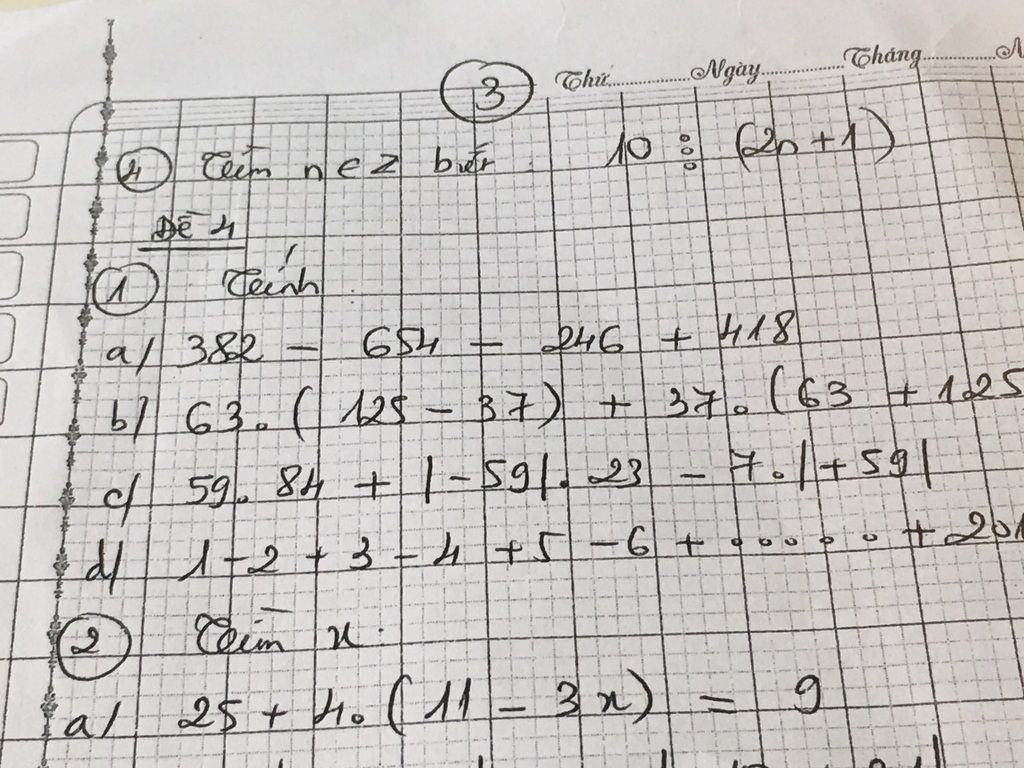 Thứ............Ngày............Tháng............N
3
4 Tìm n ∈ Z biết 10 ⋮ (2n + 1)
Đề 4
1 Tính
a/ 382 - 654 - 246 + 418
b/ 63.( 125 - 37) + 37.(63 + 125
c/ 59. 84 + |-59|. 23 - 7.|+59|
d/ 1 - 2 + 3 - 4 + 5 - 6 + ...... + 201
2 Tìm x
a/ 25 + 4.(11 - 3x) = 9